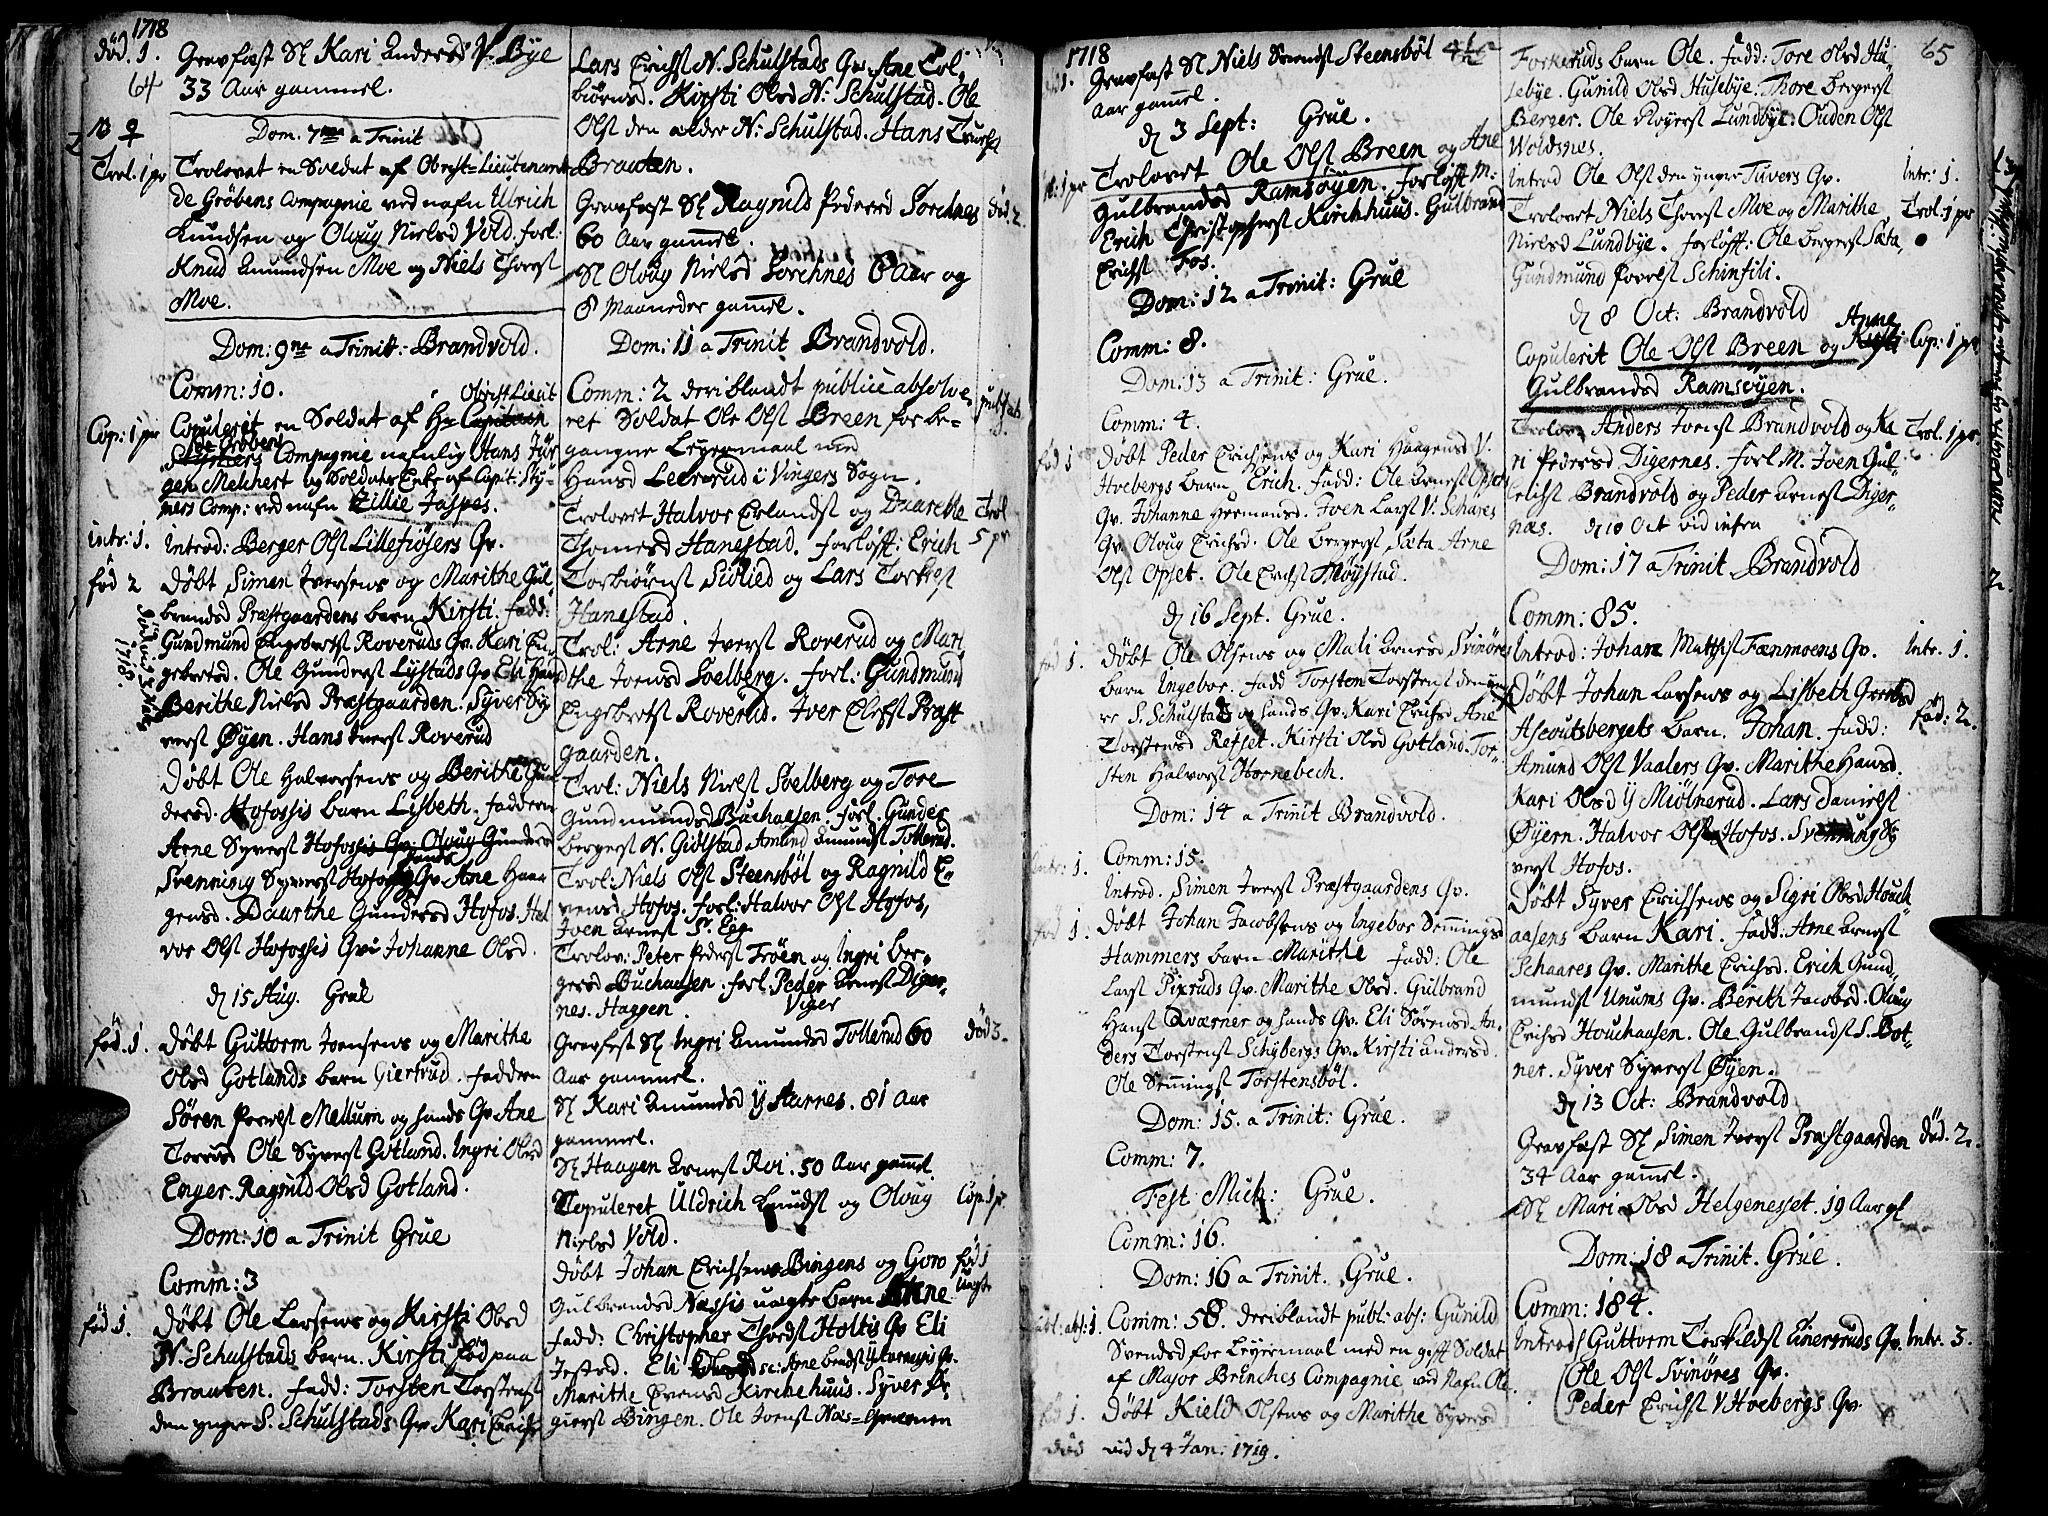 1718
død. 1. Gravfæst Sl Kari Andersd N. Bye
64 33 Aar gammel.
Dom. 7ma a Trinit
Trol. 1 pr Trolovet en Soldat af Obrist-Lieutenant
de Gröbens Compagnie ved nafn Ulrich
Knudsen og Oloug Nielsd Vold. forl:
Knud Amundsen Moe og Niels Thorst
Moe.
Dom: 9ne a Trinit: Brandvold.
Comm: 10.
Obrist Lieut
Cop: 1 pr Copuleret en Soldat af Hr Capitain
de Gröbens
Compagnie nafnlig Hans Jür
gen Melchert og Soldater Enke af Capit: Sty-
ners Comp: ved nafn Cillie Jaspas.
intr: 1. Introd: Berger Olst Lillefiösers Qv.
fød 2 Døbt Simen Iversens og Marithe Gul
brands Præstgaardens barn Kirsti. fadd:
Gundmund Engebretst Roveruds Qv. Kari En-
gebretsd. Ole Gunderst Lystads Qv. Eli Hansd
Berithe Nielsd Præstgaarden. Syver Sy
verst Øyen. Hans Iverst Roverud
1718.
Døbt Ole Halvorsens og Berithe Gun
dersd. Hofossis barn Lisbeth. faddere
Arne Syverst Hofossis Qv. Oloug Gundersd
Svenning Syverst Hofos hands Qv Ane Haa
gensd. Daarthe Gundersd Hofos. Hal
vor Olst Hofossis Qv: Johanne Olsd.
d 15 Aug. Grue
fød. 1. Døbt Guttorm Joensens og Marithe
Olsd Gotlands barn Giertrud. faddere
Sören Povelst Mellum og hands Qv Ane
Torersd Ole Syverst Gotland. Ingri Olsd
Enger. Ragnild Olsd Gotland.
Dom: 10 a Trinit Grue
Comm: 3
fød 1. Døbt Ole Larsens og Kirsti Olsd
N. Schulstads barn. Kirsti fød paa
Brauten. fadd: Torsten Torstenst
den yngre S. Schulstads Qv Kari Erichsd
Lars Erichst N. Schulstads Qv. Ane Tol-
biörnsd. Kirsti Olsd N: Schulstad. Ole
Olst den ælder N: Schulstad. Hans Truelst
Brauten.
Gravfæst Sl Ragnild Pedersd Sorchnes død 2.
60 Aar gammel.
Sl Oloug Nielsd Sorchnes 6 Aar og
8 Maaneder gammel.
Dom: 11 a Trinit Brandvold.
Comm: 2 deriblandt publicè absolve-
ret Soldat Ole Olst Breen for be-
gangne Leyermaal med
Hansd Leerrud i Vingers Sogn.
Trolovet Halvor Erlandst og Daarethe Trol
Thomesd Hanestad. Forlöfft: Erich 5 pr
Torkiörnst Sidlied og Lars Torkelst
Hanestad.
Trol: Arne Iverst Roverud og Mari
the Joensd Soelberg. forl: Gundmund
Engebretst Roverud. Iver Elefst Præst
gaarden.
Trol: Niels Nielst Soelberg og Tore
Gundmundsd Buchaasen. forl. Gunder
Bergerst N. Gidlstad Amund Amundst Tollerud.
Trol: Niels Olst Steensböl og Ragnild E
vensd Hofos. forl: Halvor Olst Hofos,
Joen Arnest Sr. Eeg.
Trolov: Peter Pederst Fröen og Ingri Ber-
gersd Buchaasen. forl. Peder Arnest Diger
nes. Haagen Viger
Gravfæst Sl Ingri Amundsd Tollerud 60 død 3.
Aar gammel.
Sl Kari Amundsd Y Aarnes. 81 Aar
gammel.
Sl Haagen Arnest Roi. 50 Aar gammel.
Copuleret Uldrich Knudst og Oloug Cop. 1 p
Nielsd Vold.
Døbt Johan Erichsens Bingens og Goro fød 1
Gulbrandsd Næssis uægte barn Arne uægte
fadd: Christopher Thordst Holtis Qv Eli
Jestsd. Eli sc: Arne
Marithe Evensd Kirchehuus. Syver Bir
gierst Bingen. Ole Joenst Næs=Grævenen
1718
Gravfæst Sl Niels Svendst Steensböl 4 1/2
Aar gamel.
d 3 Sept: Grue.
Trolovet Ole Olst Breen og Ane
Gulbrandsd Ramsöyen. forlöfft M:
Erich Christopherst Kirchhuus. Gulbrand
Erichst Fos.
Dom: 12 a Trinit: Grue
Comm: 8.
Dom: 13 a Trinit: Grue.
Comm: 4.
fød 1 Døbt Peder Erichsens og Kari Haagensd V.
Hvebergs barn Erich. fadd: Ole Arnest Opsets
Qv. Johanne Hermansd. Joen Larst V. Schares
Qv. Oloug Erichsd. Ole Bergerst Sæta Arne
Olst Opset. Ole Erichst Møystad.
d 16 Sept. Grue.
fød 1. Døbt Ole Olsens og Mali Arnesd Svinöres
barn Ingebor. fadd Torsten Torstenst den yng
re S. Schulstads og hands Qv. Kari Erichsd Ane
Torstensd Refset. Kirsti Olsd Gotland. Tor-
sten Halvorst Hornebech.
Dom: 14 a Trinit Brandvold.
Comm: 15.
intr: 1. Introd. Simen Iverst Præstgaardens Qv.
fød 1. Døbt Johan Jacobsens og Ingebor Semmingsd
Hammers barn Marithe fadd: Ole
Larst Pixruds Qv. Marithe Olsd. Gulbrand
Hanst Qværner og hands Qv. Eli Sörensd An-
ders Torstenst Schybergs Qv. Kirsti Andersd.
Ole Semmingst Torstensböl.
Dom: 15. a Trinit: Grue.
Comm: 7.
Fest Mich: Grue.
Comm: 16.
Dom: 16 a Trinit. Grue.
publ: abs: 1. Comm: 58. deriblandt publ: abs: Gunild
Svendsd for Leyermaal med en gift Soldat
af Major Brünches Compagnie ved Nafn Ole.
fød 1. Døbt Kield Olsens og Marithe Syversd
død vid d 4 Jan: 1719.
65
Forkeruds barn Ole. fadd: Tore Olsd Hu
sebye. Gunild Olsd Husebye. Thore Bergerst
Berger. Ole Royerst Lundbye: Ouden Olst
Woldsnes.
Introd Ole Olst den yngre Tuvers Qv. Intr: 1.
Trolovet Niels Thorst Moe og Marithe Trol: 1 pr
Nielsd Lundbye. forlöfft: Ole Bergerst Sæta
Gundmund Povelst Schinfili.
d 8 Oct: Brandvold
Anne
Copulerit Ole Olst Breen og Kirsti Cop: 1 pr
Gulbrandsd Ramsöyen.
Trolov: Anders Joenst Brandvold og Ka Trol. 1 pr.
ri Pedersd Digernes. forl. M. Joen Gul-
lichst Brandvold og Peder Arnest Diger
næs. d 10 Oct vid infra
Dom: 17 a Trinit Brandvold
Comm: 85.
Introd: Johan Mattist Fænmoens Qv. Intr. 1.
Døbt Johan Larsens og Lisbeth
Ascoutsbergets barn. Johan. fadd: fød: 2.
Amund Olst Vaalers Qv. Marithe Hansd.
Kari Olsd Y Miölnerud. Lars Danielst
Öyern. Halvor Olst Hofos. Svenning Sy
verst Hofos.
Døbt Syver Erichsens og Sigri Olsd Houch
aasens barn Kari. fadd: Arne Arnest
Schaares Qv. Marithe Erichsd. Erich Gund
mundst Unums Qv. Berith Jacobsd. Oloug
Erichsd Houchaasen. Ole Gulbrandst S. Bot-
ner. Syver Syverst Øyen.
d 13 Oct: Brandvold
Gravfæst Sl Simen Iverst Præstgaarden død. 2.
34 Aar gammel.
Sl Mari Olsd Helgenesset. 19 Aar gl
Dom: 18 a Trinit. Grue.
Comm: 184.
Introd Guttorm Torkildst Einerruds Qv. Intr. 3.
Ole Olst Svinöres Qv.
Peder Erichst V Hvebergs Qv